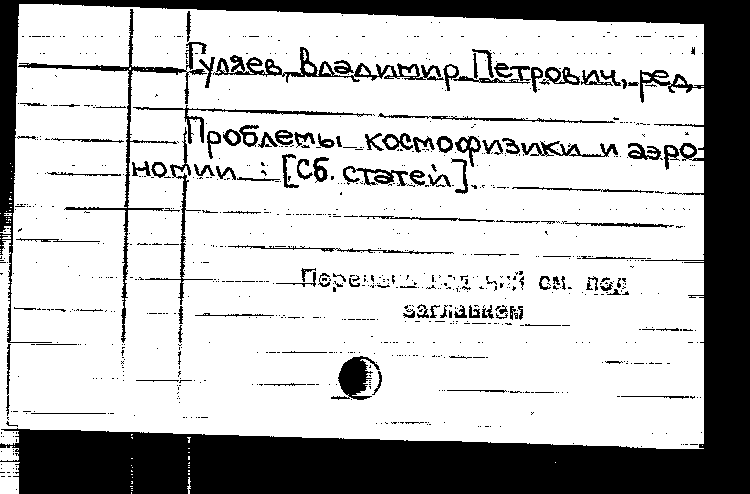 Гуляев, Владимир Петрович, ред.
Проблемы космофизики и аэро-
номии : [Сб. статей].
Перечень изданий см. под
заглавием